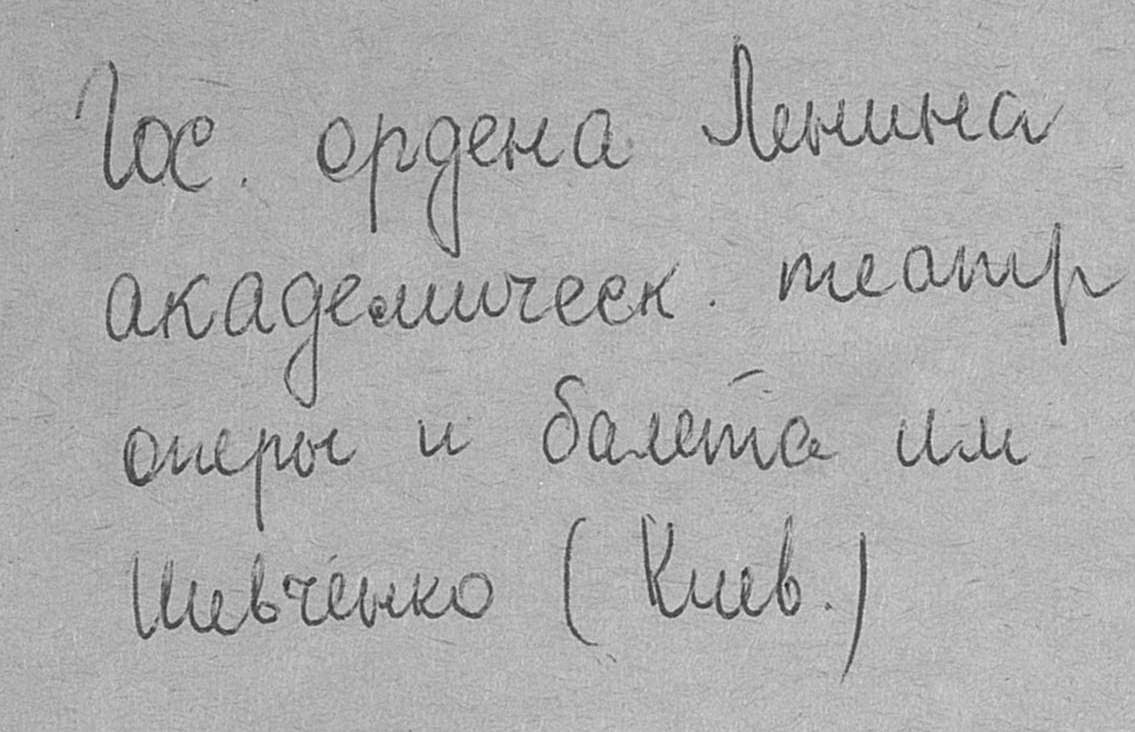 Гос. ордена Ленина
академическ. театр
оперы и балета им
Шевченко (Киев.)